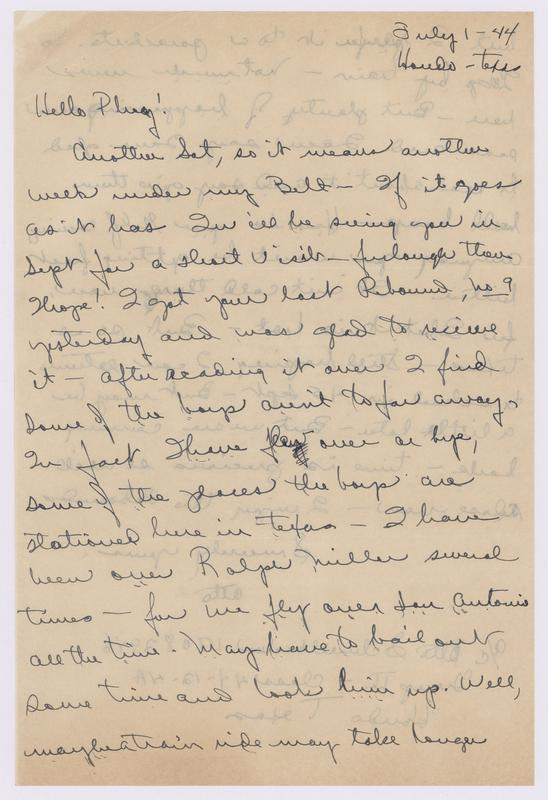 July 1-44
Hondo-Texas
Hello Plug!
Another Sat, so it means another
week under my Belt - If it goes
as it has I'll be seeing you in
Sept for a short visit - furlough then
I hope! I got your last Rebound, no 9
yesterday and was glad to receive
it - after reading it over I find
some of the boys aren't to far away.
In fact I have over or bye,
some of the places the boys are
stationed here in Texas - I have
been over Ralph Miller several
times - for we fly over San Antonio
all the time. May have to bail out
some time and look him up. Well,
maybe a train ride may take longer